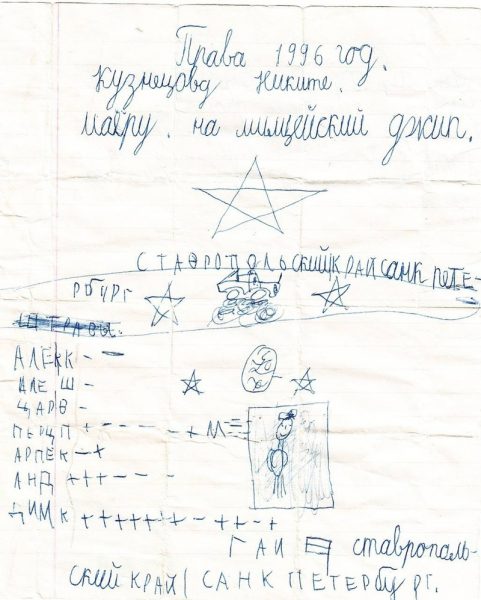 Права 1996 год.
Кузнецовд Никите.
маёру. на милицейский джип.
СТАВРОПОЛЬСКИЙ КРАЙ САНК ПЕТЕ-
РБУРГ
АЛЕКК - -
АЛЕШ -
ЦАРВ -
ПЕРЦП + - - - - - + М
АРПЕК - +
АНД + + + - - -
ДИМК + + + + + + - + - + - +
ГАИ ставрополь-
ский край САНК ПЕТЕРБУРГ.